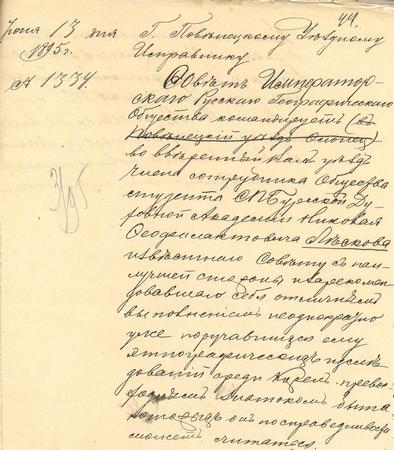 44.
Іюня 13 дня
1895 г.
№ 1334.
Г. Повѣнецкому Уѣздному
Исправнику
Совѣтъ Император-
скаго Русскаго Географическаго
Общества командируетъ (въ
Повѣнецкій уѣздъ Олонец
во ввѣренный Вамъ уѣздъ
члена сотрудника Общества
студента СПБургской Ду-
ховной Академіи Николая
Ѳеофилактовича Лѣскова
извѣстнаго Совѣту съ наи-
лучшей стороны и зарекомен-
довавшаго себя отличнымъ
выполненіемъ неоднократно
уже поручавшихся ему
этнографическихъ изслѣ-
дованій среди Карелъ, превос-
ходнымъ знатокомъ быта
которыхъ онъ по справедливости
можетъ считаться.